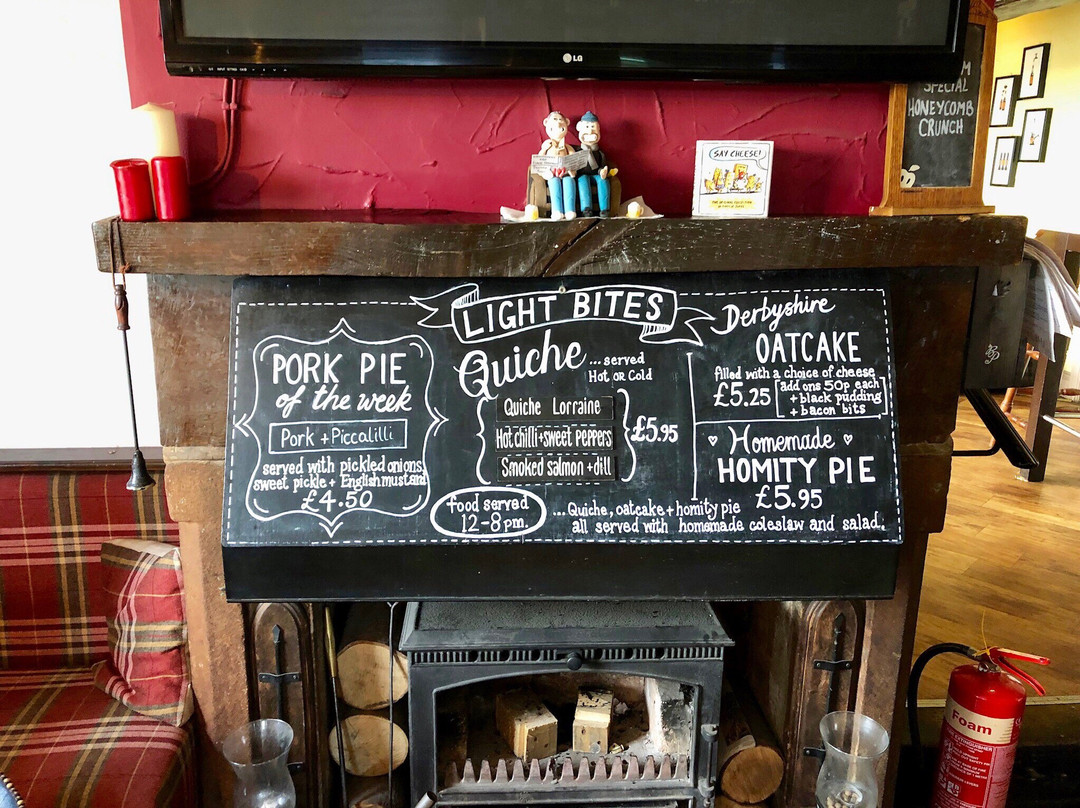 LG
SPECIAL
HONEYCOMB
CRUNCH
SAY CHEESE!
LIGHT BITES
PORK PIE
of the week
Pork + Piccalilli
served with pickled onions,
sweet pickle + English mustard
£4.50
Quiche ...served
Hot or Cold
Quiche Lorraine
Hot chilli + sweet peppers
Smoked salmon + dill
£5.95
food served
12-8pm.
Derbyshire
OATCAKE
filled with a choice of cheese
£5.25
add ons 50p each
+ black pudding
+ bacon bits
Homemade
HOMITY PIE
£5.95
...Quiche, oatcake + homity pie
all served with homemade coleslaw and salad.
Foam